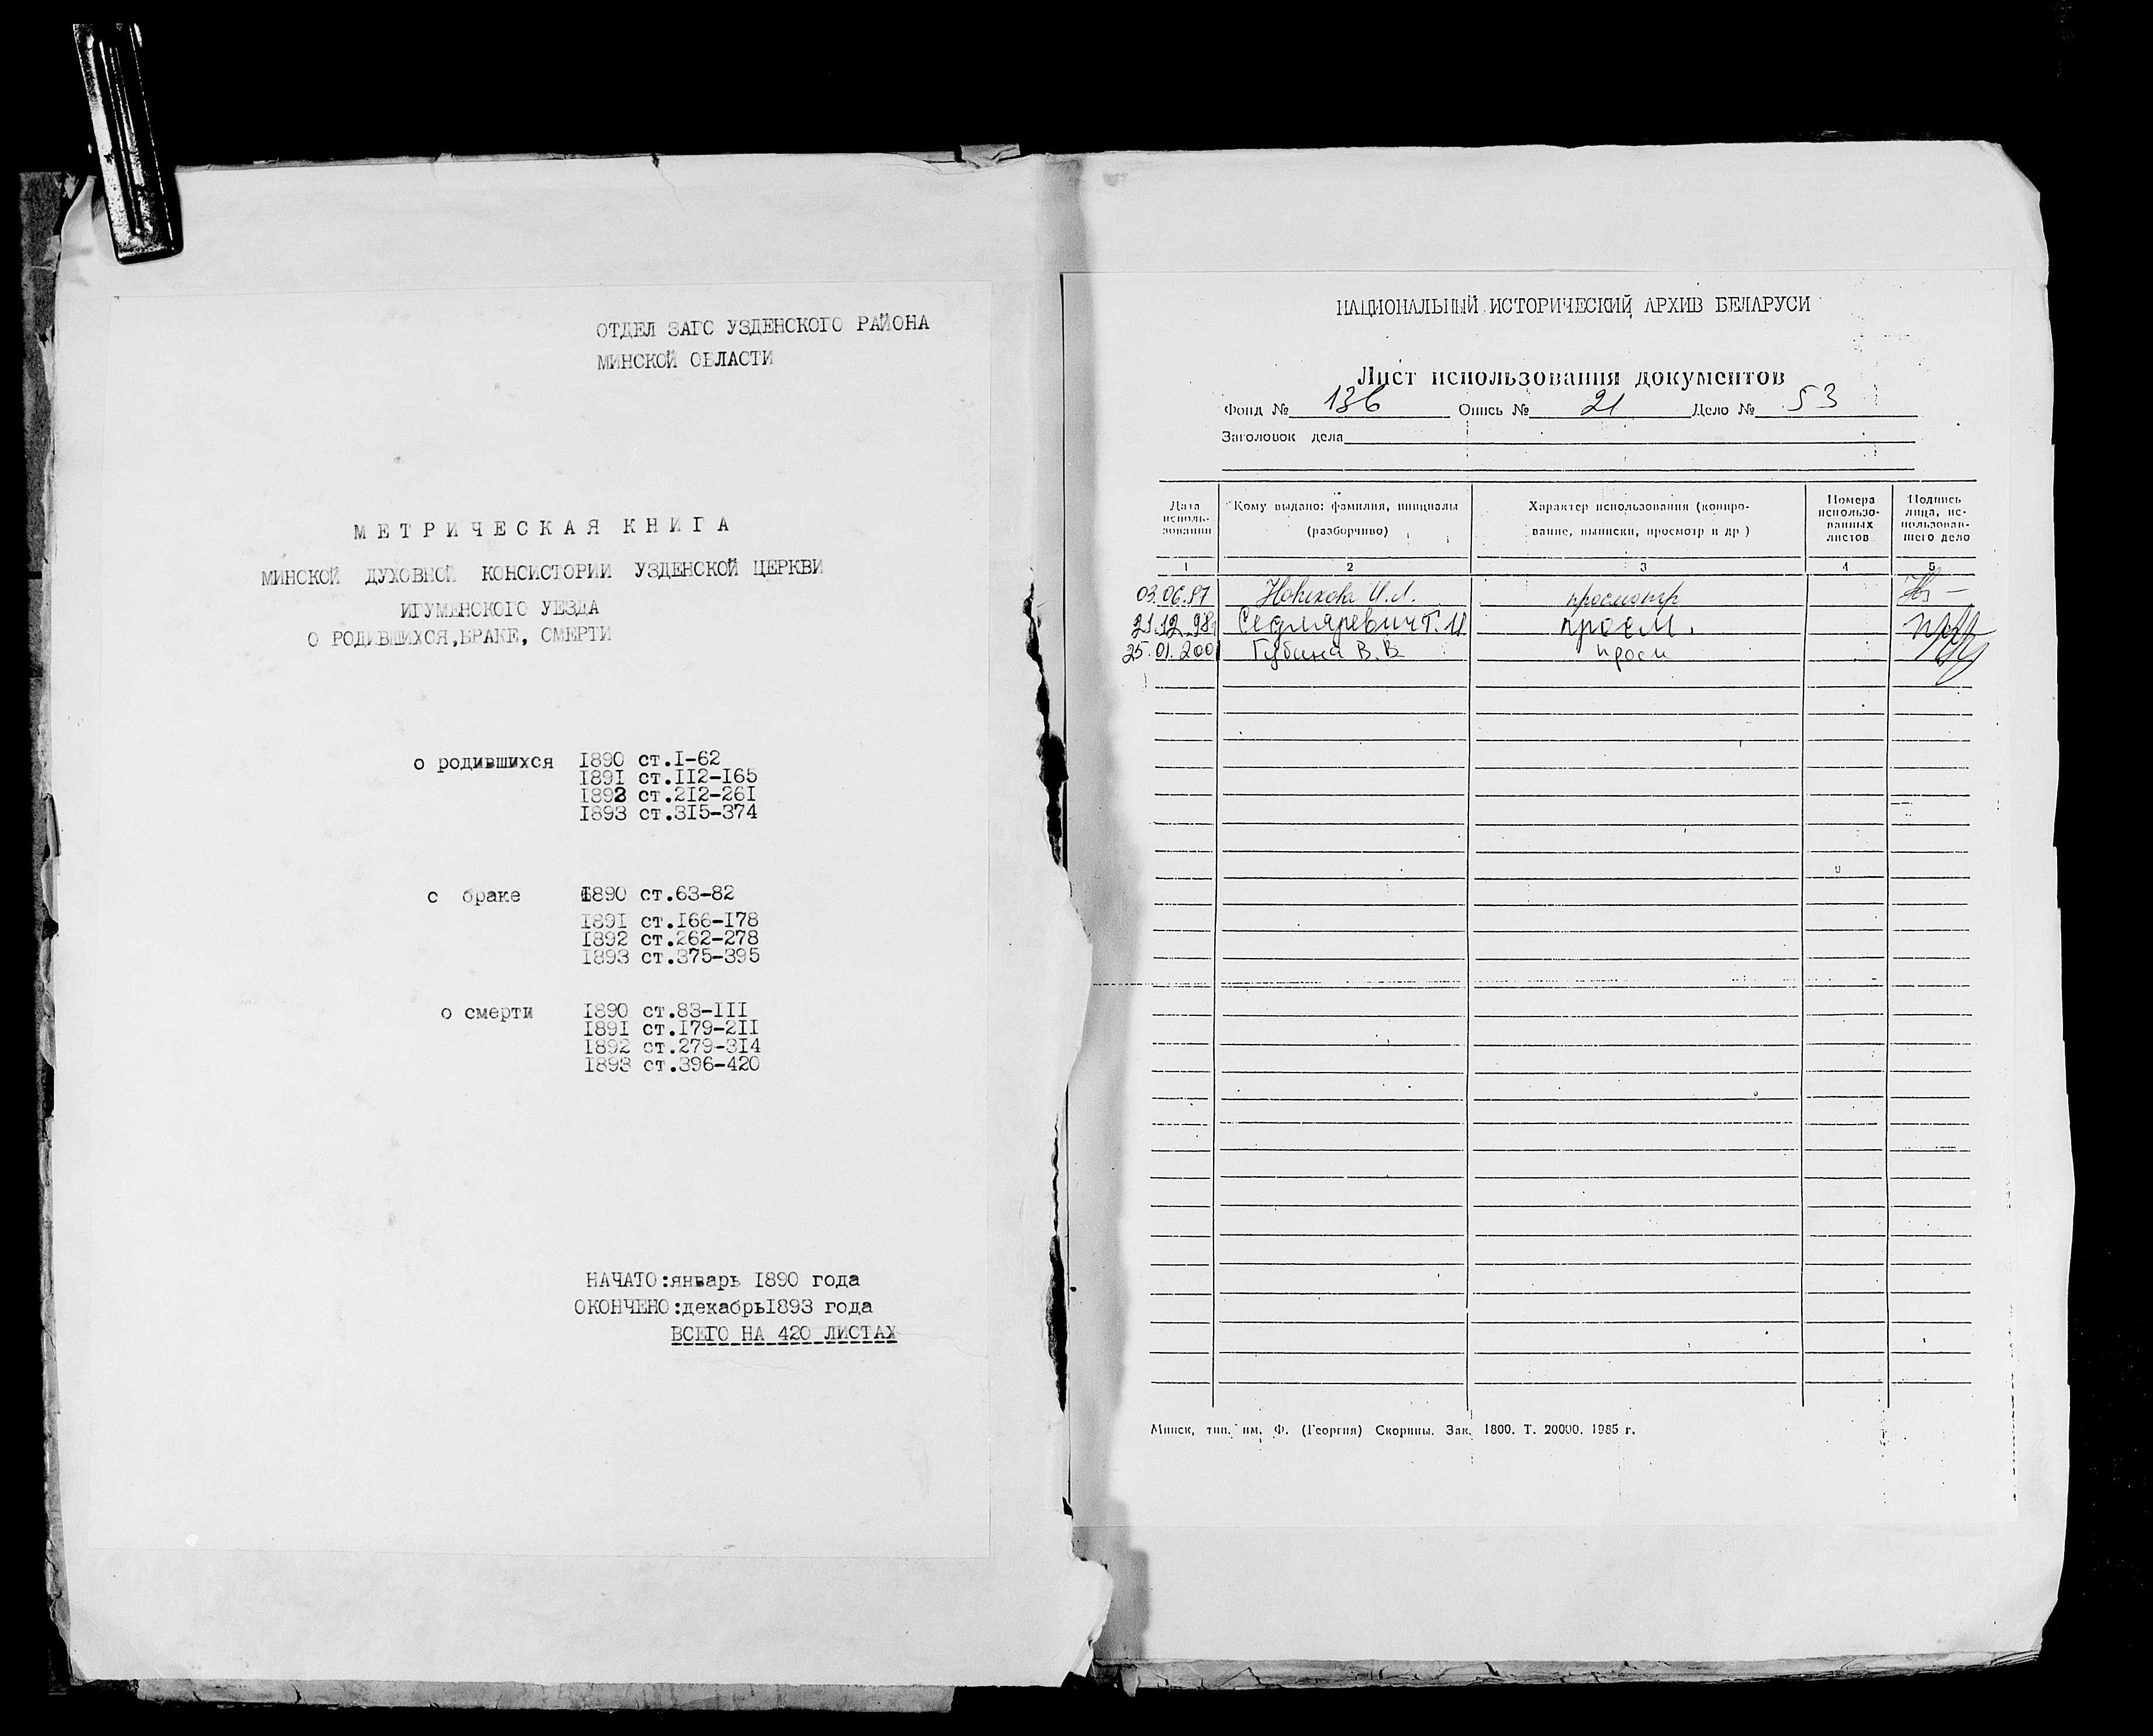 ОТДЕЛ ЗАГС УЗДЕНСКОГО РАЙОНА
МИНСКОЙ ОБЛАСТИ
МЕТРИЧЕСКАЯ КНИГА
МИНСКОЙ ДУХОВНОЙ КОНСИСТОРИИ УЗДЕНСКОЙ ЦЕРКВИ
ИГУМЕНСКОГО УЕЗДА
О РОДИВШИХСЯ, БРАКЕ, СМЕРТИ
о родившихся 1890 ст.I-62
1891 ст.112-165
1892 ст.212-261
1893 ст.315-374
о браке 1890 ст.63-82
1891 ст.166-178
1892 ст.262-278
1893 ст.375-395
о смерти 1890 ст.83-111
1891 ст.179-211
1892 ст.279-314
1893 ст.396-420
НАЧАТО:январь 1890 года
ОКОНЧЕНО:декабрь1893 года
ВСЕГО НА 420 ЛИСТАХ
НАЦИОНАЛЬНЫЙ ИСТОРИЧЕСКИЙ АРХИВ БЕЛАРУСИ
Лист использования документов
Фонд № 136 Опись № 21 Дело № 53
Заголовок дела
Дата исполь-зования
Кому выдано: фамилия, инициалы (разборчиво)
Характер использования (копиро-вание, выписки, просмотр и др )
Номера использо-ванных листов
Подпись лица, ис-пользовав-шего дело
1 2 3 4 5
03.06.97 Новикова И.Л. просмотр
21.12.98 Седляревич Т. И просм.
25.01.2001 Губина В.В. просм
Минск, тип. им. Ф. (Георгия) Скорины. Зак. 1800. Т. 20000. 1985 г.